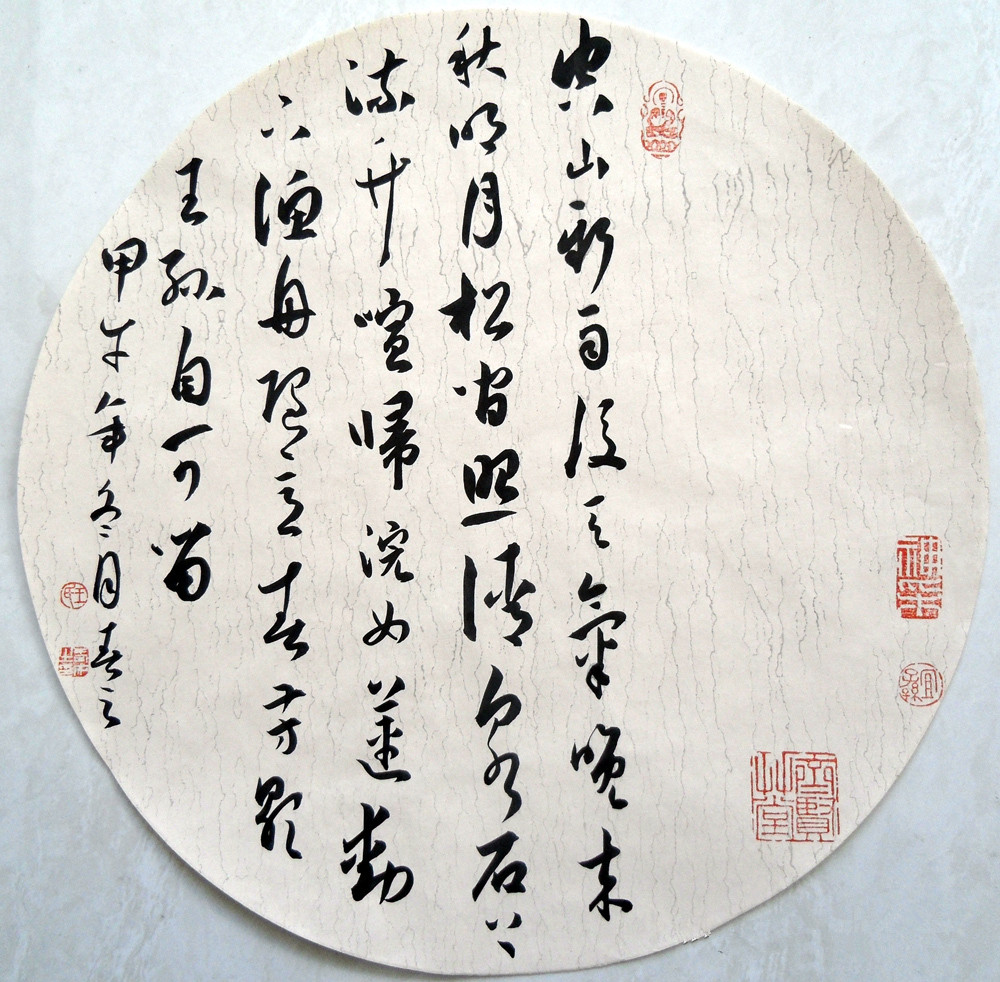 空山新雨後天氣晚来
秋明月松間照清泉石上
流竹喧歸浣女蓮動
下漁舟随意春芳歇
王孫自可留
甲午年冬月春之